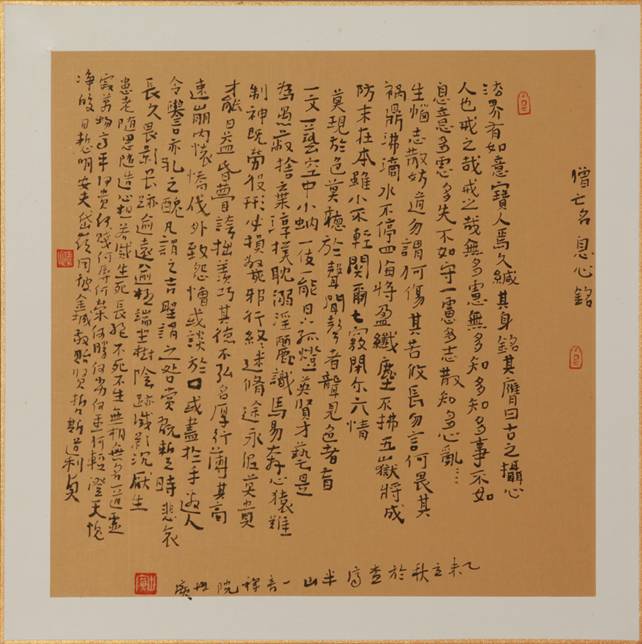 僧亡名息心銘
法界有如意寶人焉久緘其身銘其膺曰古之攝心
人也戒之哉戒之哉無多慮無多知多知多事不如
息意多慮多失不如守一慮多志散知多心亂…
生惱志散妨道勿謂何傷其苦攸長勿言何畏其
禍鼎沸滴水不停四海將盈纖塵不拂五嶽將成
防末在本雖小不輕關爾七竅閉尔六情
莫現於色莫聽於聲聞聲者聾見色者盲
一文一藝空中小蚋一伎一能日下孤燈英賢才藝是
為愚蔽捨棄淳樸耽溺淫麗識馬易奔心猿難
制神既勞役形必損斃邪行終迷脩途永泥莫貴
才能日益昏瞢誇拙羨巧其德不弘名厚行薄其高
速崩內懷憍伐外致怨憎或談於口或書於手邀人
令譽亦孔之醜凡謂之吉聖謂之咎賞玩暫時悲哀
長久畏影畏跡逾遠逾極端坐樹陰跡滅影沉厭生
患老隨思隨造心想若滅生死長絕不死不生無相無名一道虛
寂萬物齊平何貴何賤何辱何榮何勝何劣何重何輕澄天愧
净皎日慙明安夫岱嶺同彼金城敬貽賢哲斯道利貞
乙未立秋於查濟半山一音禅院